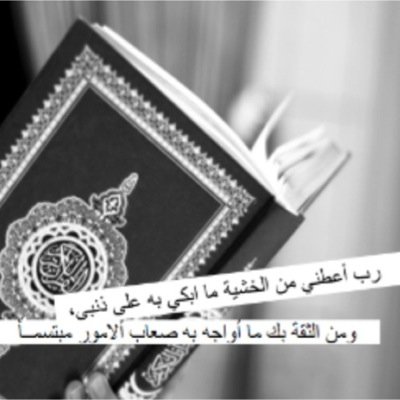 رب أعطني من الخشية ما ابكي به على ذنبي،
ومن الثقة بك ما أواجه به صعاب الامور مبتسمـاً